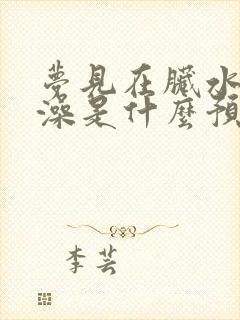 夢見在臟水
澡是什麼預
李芸